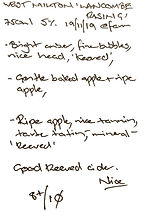 WEST MILTON 'LANCOMBE
RISING'
750ml 5% 19/11/19 @fam
- Bright amber, fine bubbles,
nice head, 'keeved',
- Gentle baked apple + ripe
apple,
- Ripe apple, nice tannin,
tart tasting, mineral -
'keeved'
Good keeved cider.
Nice
8+/10